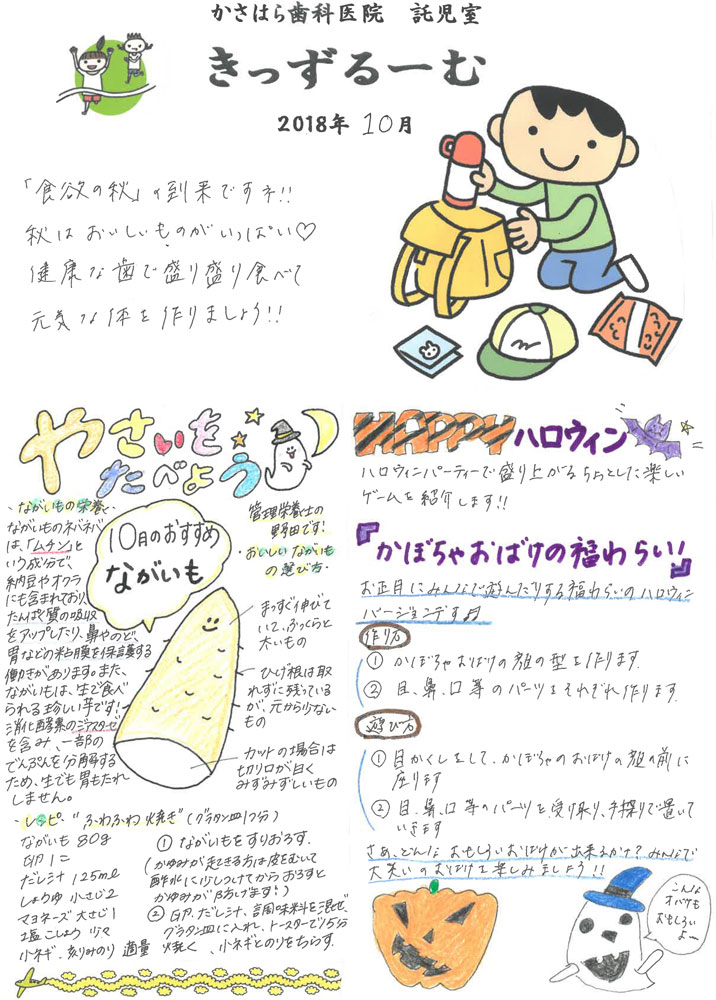 かさはら歯科医院 託児室
きっずるーむ
2018年 10月
「食欲の秋」の到来ですネ!!
秋は おいしいものがいっぱい♡
健康な歯で盛り盛り食べて
元気な体を作りましょう!!
やさいを
たべよう
・ながいもの栄養・
ながいものネバネバ
は、「ムチン」と
いう成分で、
納豆やオクラ
にも含まれており、
たんぱく質の吸収
をアップしたり、鼻やのど、
胃などの粘膜を保護する
働きがあります。また、
ながいもは、生で食べ
られる珍しい芋です!
消化酵素のジアスターゼ
を含み、一部の
でんぷんを分解する
ため、生でも胃もたれ
しません。
10月のおすすめ
ながいも
管理栄養士の
野田です!
・おいしいながいも
の選び方・
まっすぐ伸びて
いて、ふっくらと
太いもの
ひげ根は取
れずに残っている
が、元から少ない
もの
カットの場合は
切り口が白く
みずみずしいもの
・レシピ・ "ふわふわ焼き" (グラタン皿1つ分)
ながいも 80g
卵 1コ
だし汁 125ml
しょうゆ 小さじ2
マヨネーズ 大さじ1
塩こしょう 少々
小ネギ、刻みのり 適量
① ながいもをすりおろす。
(かゆみが起きる方は皮をむいて
酢水に少しつけてからおろすと
かゆみが防げます!)
② 卵、だし汁、調味料を混ぜ、
グラタン皿に入れ、トースターで15分
焼く、小ネギとのりをちらす。
HAPPY ハロウィン
ハロウィンパーティーで盛り上がるちょっとした楽しい
ゲームを紹介します!!
『かぼちゃおばけの福わらい!』
お正月にみんなで遊んだりする福わらいのハロウィン
バージョンです♬
作り方
① かぼちゃおばけの顔の型を作ります。
② 目、鼻、口等のパーツをそれぞれ作ります。
遊び方
① 目かくしをして、かぼちゃのおばけの顔の前に
座ります
② 目、鼻、口等のパーツを受け取り、手探りで置いて
いきます
さあ、どんなおもしろいおばけが出来るかな?みんなで
大笑いのおばけを楽しみましょう!!
こんな
オバケも
おもしろい
よー